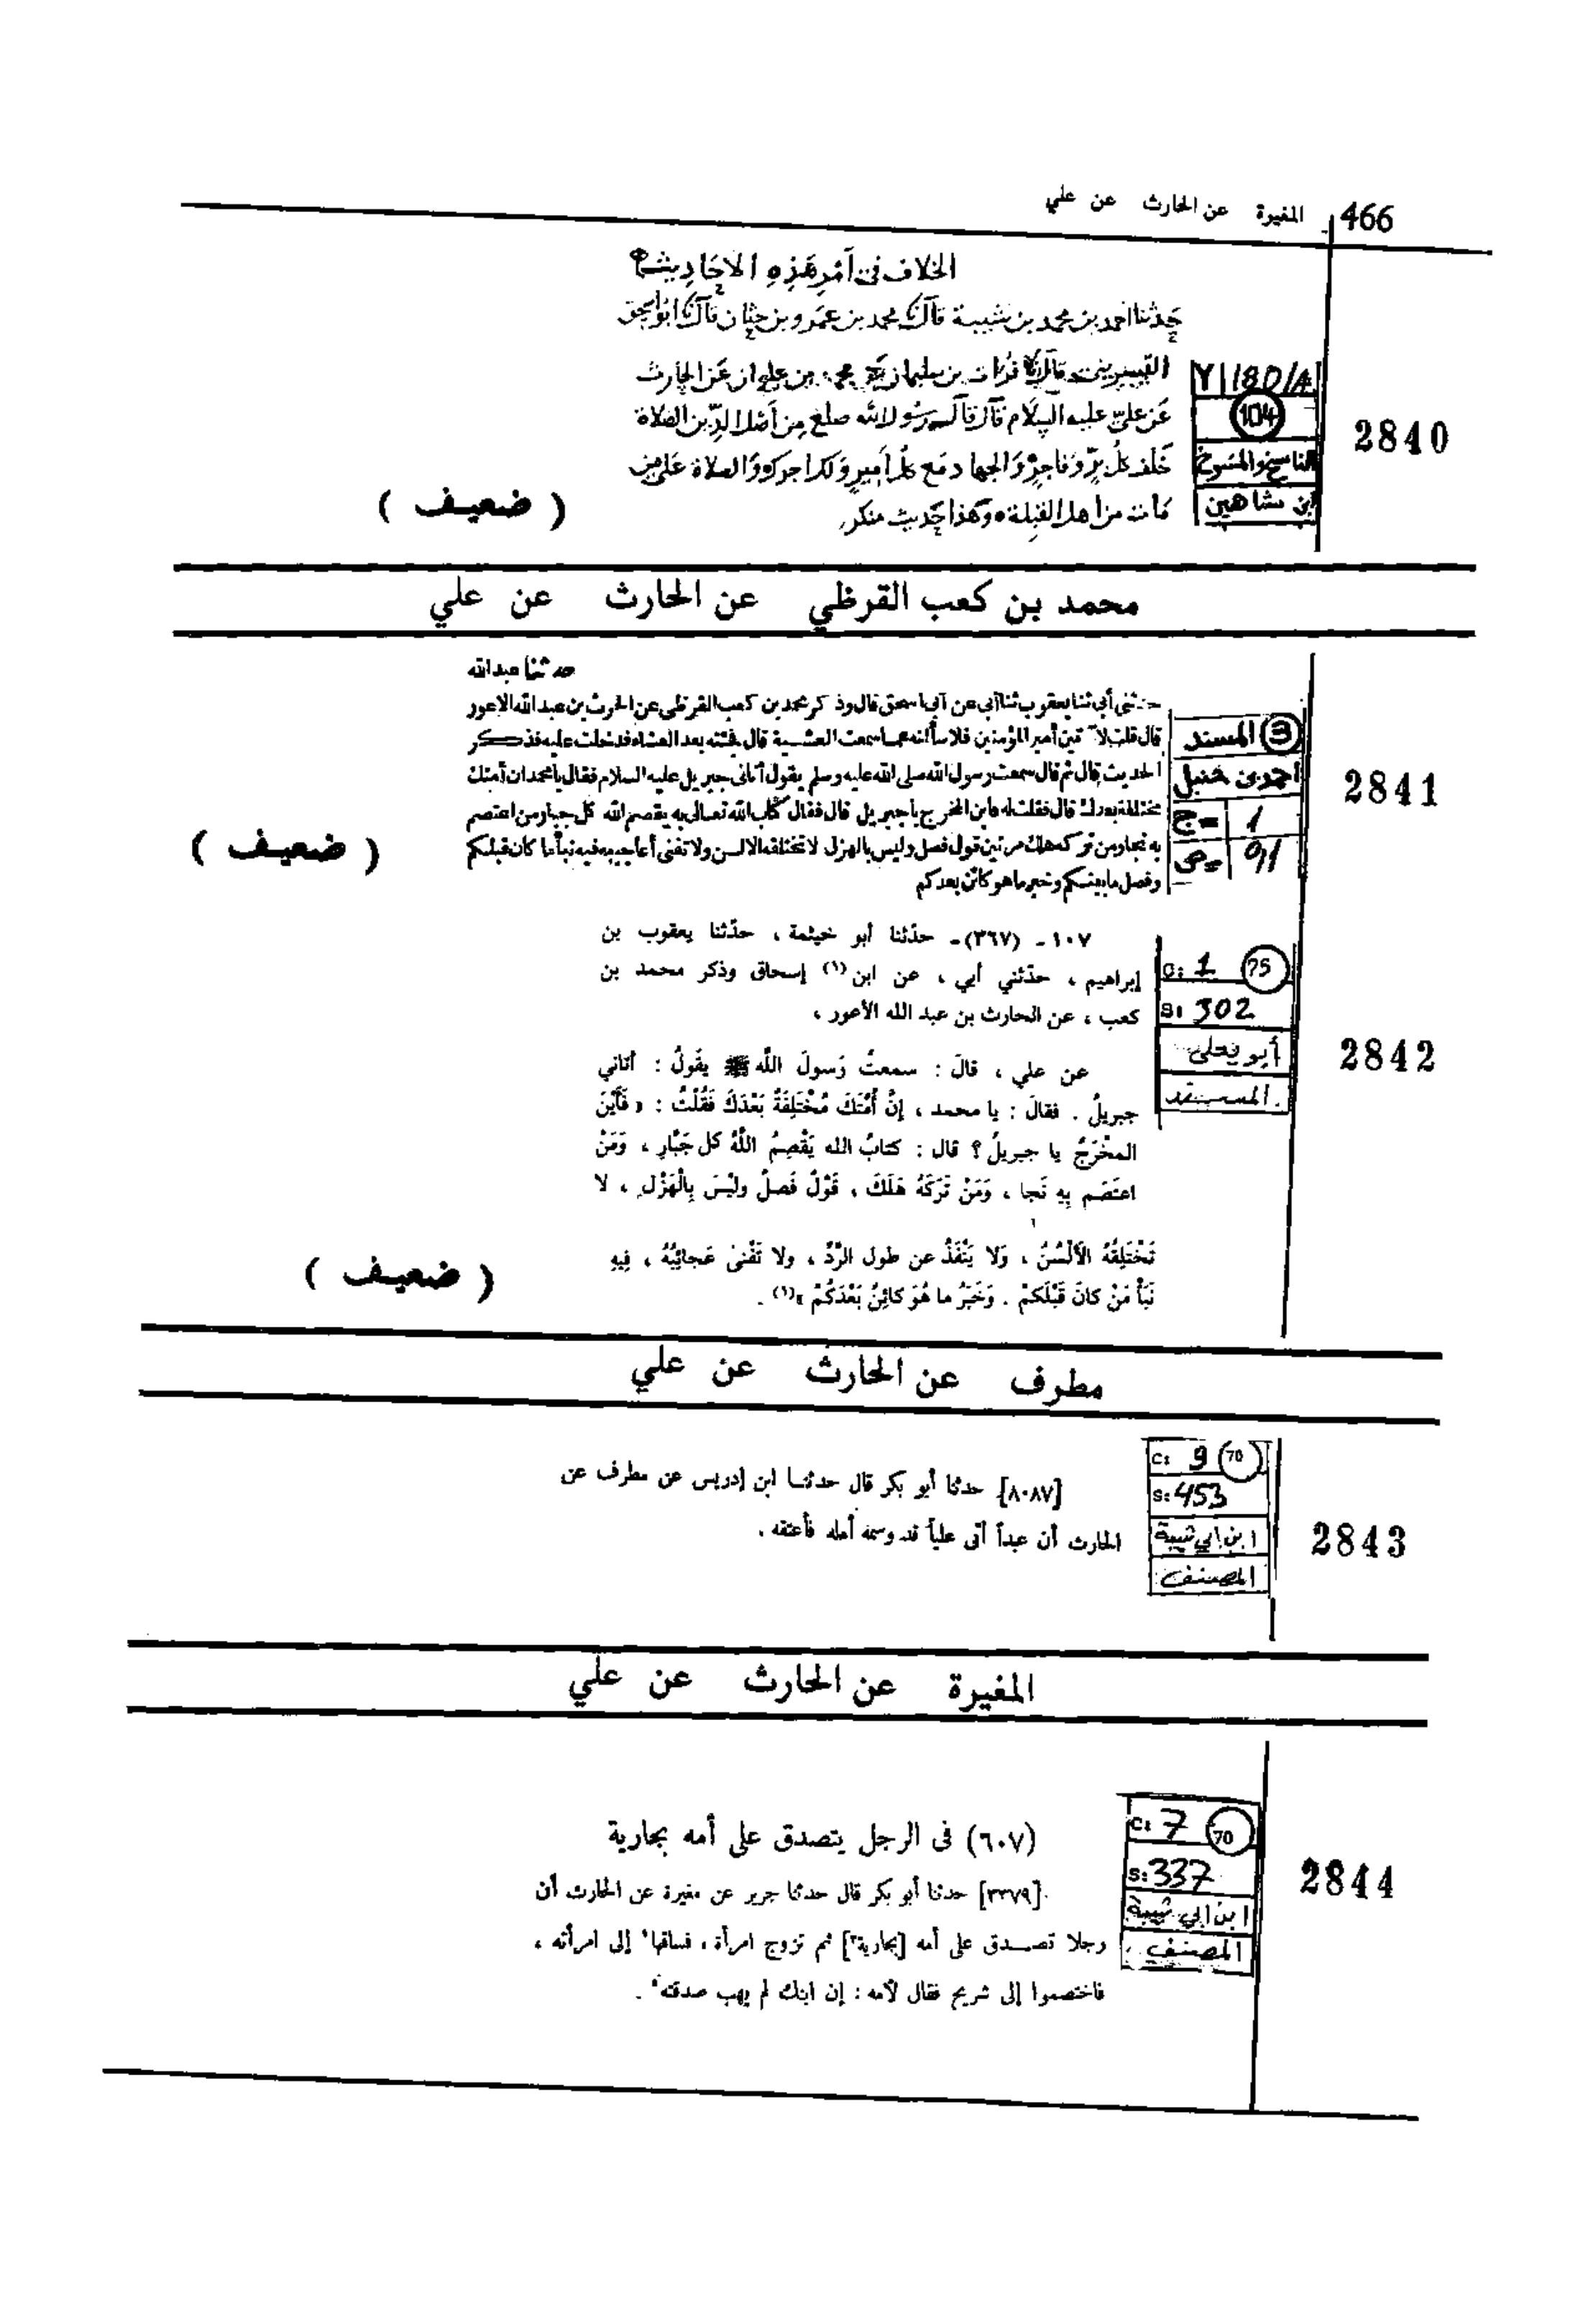 466 المغيرة عن الحارث عن علي
الخلاف في أمر هذه الاحاديث
حدثنا احمد بن محمد بن شيبة قال نا محمد بن عمرو بن حنان قال نا ابو اسحق
قال نا فرات بن سليمان عن محمد بن علوان عن الحارث
عن علي عليه السلام قال قال رسول الله صلع من أصل الدين الصلاة
خلف كل بر وفاجر والجهاد مع كل أمير ولك اجرك والصلاة على من
مات من أهل القبلة وهذا حديث منكر
( ضعيف )
Y | 180/A
104
الناسخ والمنسوخ
ابن شاهين
2840
محمد بن كعب القرظي عن الحارث عن علي
حدثنا عبد الله
حدثني أبي ثنا يعقوب ثنا أبي عن أبي اسحق قال وذكر محمد بن كعب القرظي عن الحرث بن عبد الله الاعور
قال قلت لآتين أمير المؤمنين فلاسألنه عما سمعت العشية قال فجئته بعد العشاء فدخلت عليه فذكر
الحديث قال ثم قال سمعت رسول الله صلى الله عليه وسلم يقول أتاني جبريل عليه السلام فقال يا محمد ان أمتك
مختلفة بعدك قال فقلت له فاين المخرج يا جبريل قال فقال كتاب الله تعالى به يقصم الله كل جبار من اعتصم
به نجا ومن تركه هلك مرتين قول فصل وليس بالهزل لا تختلقه الالسن ولا تفنى أعاجيبه فيه نبأ ما كان قبلكم
وفصل ما بينكم وخبر ما هو كائن بعدكم
( ضعيف )
3 المسند
احمد بن حنبل
ج= 1
ص= 91
2841
١٠٧ - (٣٦٧) - حدّثنا أبو خيثمة ، حدّثنا يعقوب بن
إبراهيم ، حدّثني أبي ، عن ابن (١) إسحاق وذكر محمد بن
كعب ، عن الحارث بن عبد الله الأعور ،
عن علي ، قالَ : سمعتُ رَسولَ اللَّه ﷺ يقُولُ : أتاني
جبريلُ . فقالَ : يا محمد ، إنَّ أُمَّتَكَ مُخْتَلِفَةٌ بَعْدَكَ فَقُلْتُ : « فَأَيْنَ
المخْرَجُ يا جبريلُ ؟ قال : كتابُ الله يَقْصِمُ اللَّهُ كل جَبَّارٍ ، وَمَنْ
اعتَصَم بِهِ نَجا ، وَمَنْ تَرَكَهُ هَلَكَ ، قَوْلٌ فَصلٌ وليْسَ بِالْهَزْلِ ، لا
تَخْتَلِقُهُ الأَلْسُنُ ، وَلا يَنْفَذُ عن طول الرَّدِّ ، ولا تَفْنىٰ عَجائِبُهُ ، فِيهِ
نَبَأُ مَنْ كانَ قَبْلَكمْ . وَخَبَرُ ما هُوَ كائِنٌ بَعْدَكُمْ »(١) .
( ضعيف )
C: 1 75
S: 302
أبو يعلى
المسند
2842
مطرف عن الحارث عن علي
[٨٠٨٧] حدثنا أبو بكر قال حدثنا ابن إدريس عن مطرف عن
الحارث أن عبدأ أتى علياً قد وسمه أهله فأعتقه .
C: 9 70
S: 453
ابن ابي شيبة
المصنف
2843
المغيرة عن الحارث عن علي
(٦٠٧) فى الرجل يتصدق على أمه بجارية
[٣٣٧٩] حدثنا أبو بكر قال حدثنا جرير عن مغيرة عن الحارث أن
رجلا تصدق على أمه [بجارية٣] ثم تزوج امرأة ، فساقها٤ إلى امرأته ،
فاختصموا إلى شريح فقال لأمه : إن ابنك لم يهب صدقته٥ .
C: 7 70
S: 337
ابن ابي شيبة
المصنف
2844